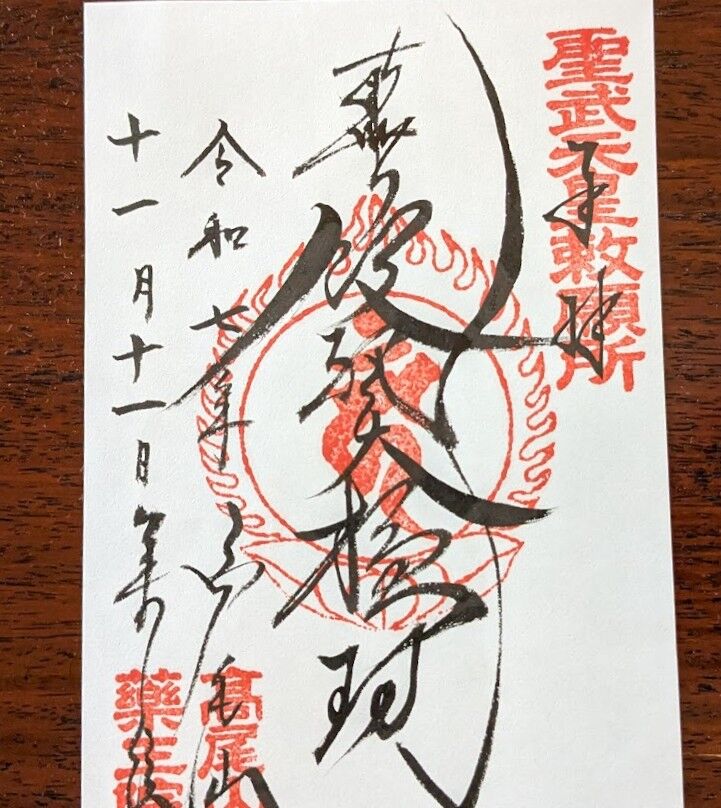 聖武天皇敕願所
奉拝
飯縄大権現
令和七年 高尾山
十一月十一日
高尾山
藥王院